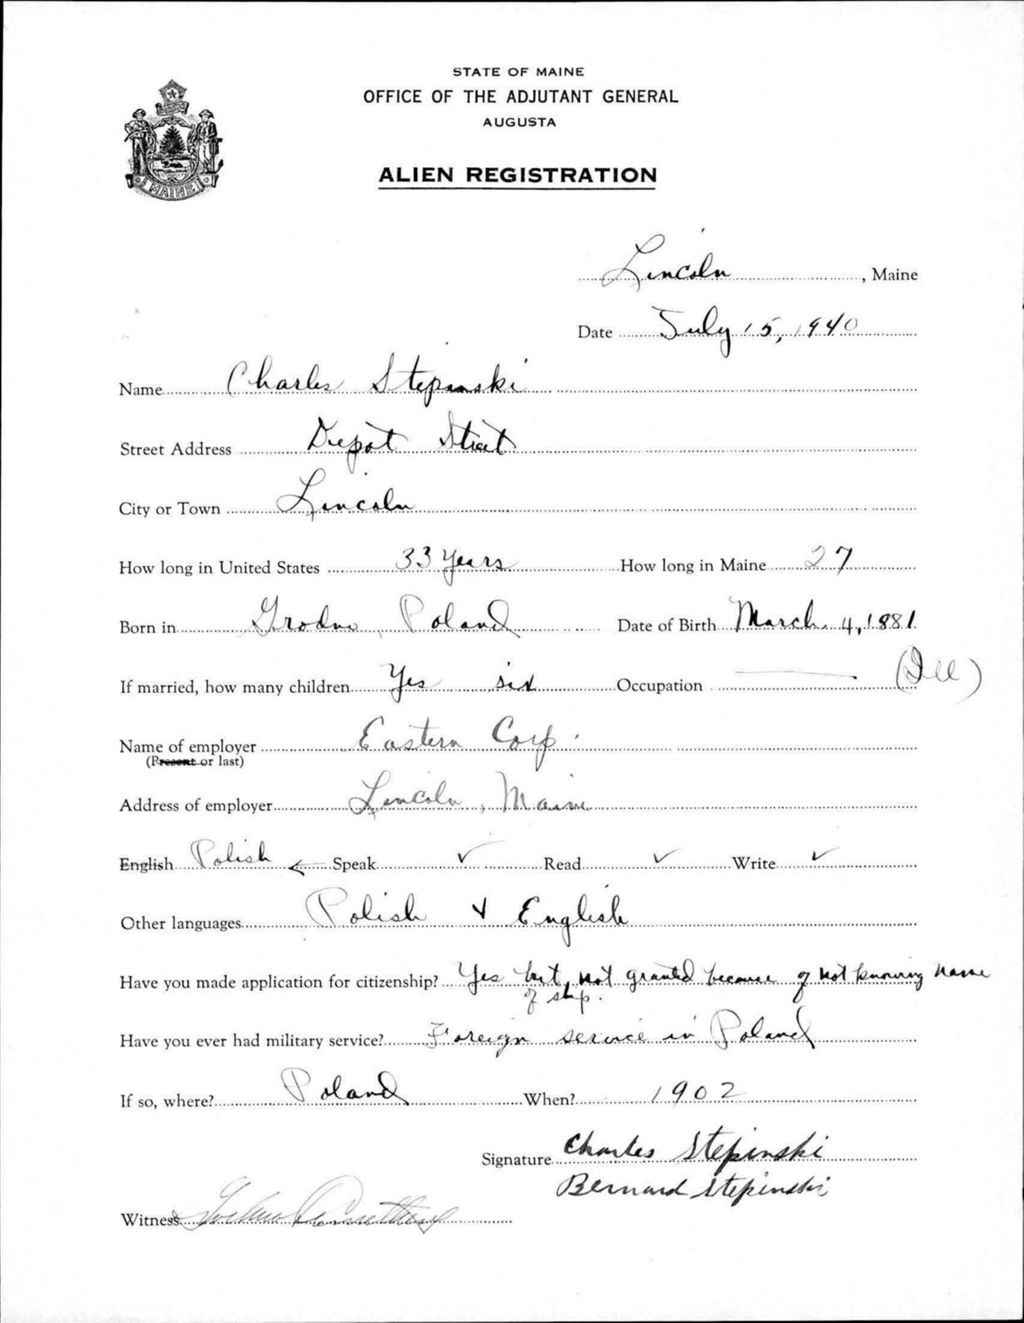 STATE OF MAINE
OFFICE OF THE ADJUTANT GENERAL
AUGUSTA
ALIEN REGISTRATION
MAINE
Lincoln, Maine
Date July 15, 1940
Name Charles Stepinski
Street Address Depot Street
City or Town Lincoln
How long in United States 33 Years How long in Maine 27
Born in Grodno, Poland Date of Birth March 4, 1881
If married, how many children Yes six Occupation (Ill)
Name of employer Eastern Corp.
(Present or last)
Address of employer Lincoln, Maine
English Polish Speak ✓ Read ✓ Write ✓
Other languages Polish & English
Have you made application for citizenship? Yes but not granted because of not knowing name
of ship.
Have you ever had military service? Foreign service in Poland
If so, where? Poland When? 1902
Signature Charles Stepinski
Bernard Stepinski
Witness